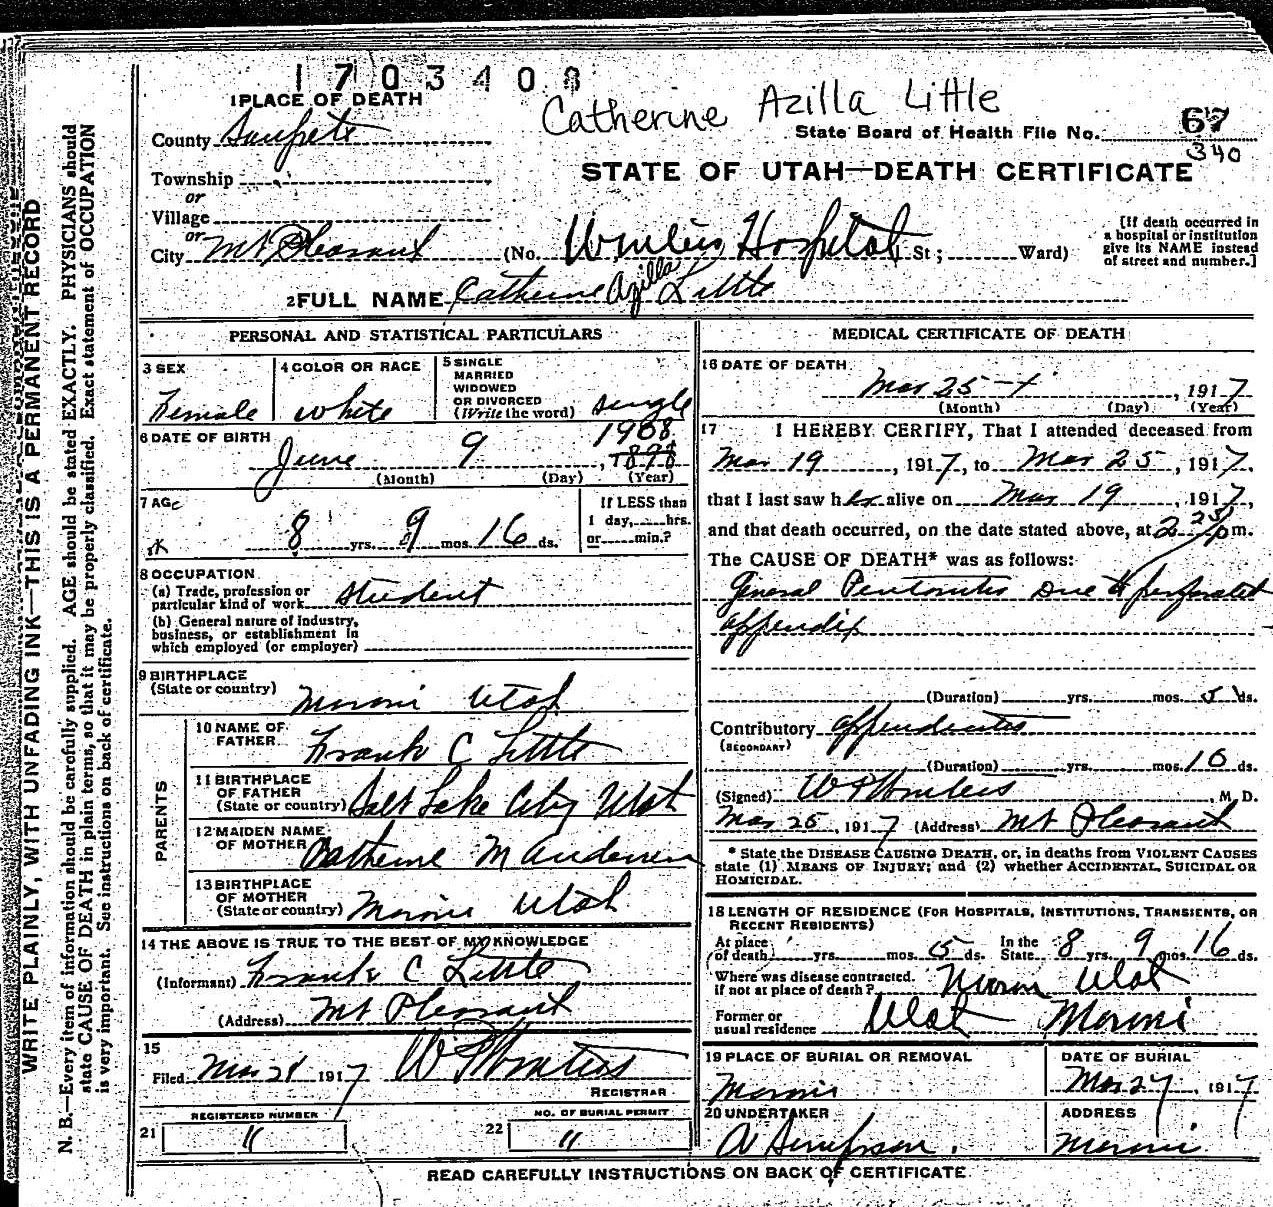 1703408
Catherine Azilla Little
1 PLACE OF DEATH
County Sanpete
State Board of Health File No. 67
340
STATE OF UTAH—DEATH CERTIFICATE
Township
or
Village
or
City Mt Pleasant (No. Winters Hospital St; Ward)
[If death occurred in a hospital or institution give its NAME instead of street and number.]
2 FULL NAME Catherine Azilla Little
PERSONAL AND STATISTICAL PARTICULARS
3 SEX
Female
4 COLOR OR RACE
White
5 SINGLE
MARRIED
WIDOWED
OR DIVORCED
(Write the word) single
6 DATE OF BIRTH
June 9, 1908
1898
(Month) (Day) (Year)
7 AGE
8 yrs. 9 mos. 16 ds.
If LESS than
1 day, hrs.
or min.?
8 OCCUPATION
(a) Trade, profession or
particular kind of work Student
(b) General nature of Industry,
business, or establishment in
which employed (or employer)
9 BIRTHPLACE
(State or country) Moroni Utah
PARENTS
10 NAME OF
FATHER Frank C Little
11 BIRTHPLACE
OF FATHER
(State or country) Salt Lake City Utah
12 MAIDEN NAME
OF MOTHER Catherine M Andersen
13 BIRTHPLACE
OF MOTHER
(State or country) Moroni Utah
14 THE ABOVE IS TRUE TO THE BEST OF MY KNOWLEDGE
(Informant) Frank C Little
(Address) Mt Pleasant
15
Filed Mar 28 1917 W P Winters
REGISTRAR
REGISTERED NUMBER
21 11
NO. OF BURIAL PERMIT
22 11
MEDICAL CERTIFICATE OF DEATH
16 DATE OF DEATH
Mar 25, 1917
(Month) (Day) (Year)
17 I HEREBY CERTIFY, That I attended deceased from
Mar 19, 1917, to Mar 25, 1917,
that I last saw her alive on Mar 19, 1917,
and that death occurred, on the date stated above, at 2 pm.
The CAUSE OF DEATH* was as follows:
General Peritonitis Due to perforated
appendix
(Duration) yrs. mos. 5 ds.
Contributory appendicitis
(SECONDARY)
(Duration) yrs. mos. 10 ds.
(Signed) W P Winters, M. D.
Mar 25, 1917 (Address) Mt Pleasant
* State the DISEASE CAUSING DEATH, or, in deaths from VIOLENT CAUSES
state (1) MEANS OF INJURY; and (2) whether ACCIDENTAL, SUICIDAL OR
HOMICIDAL.
18 LENGTH OF RESIDENCE (FOR HOSPITALS, INSTITUTIONS, TRANSIENTS, OR
RECENT RESIDENTS)
At place
of death yrs. mos. 5 ds. In the State 8 yrs. 9 mos. 16 ds.
Where was disease contracted,
if not at place of death? Moroni Utah
Former or
usual residence Utah Moroni
19 PLACE OF BURIAL OR REMOVAL
Moroni
DATE OF BURIAL
Mar 27, 1917
20 UNDERTAKER
A Simpson.
ADDRESS
Moroni
READ CAREFULLY INSTRUCTIONS ON BACK OF CERTIFICATE
WRITE PLAINLY, WITH UNFADING INK—THIS IS A PERMANENT RECORD
N. B.—Every item of information should be carefully supplied. AGE should be stated EXACTLY. PHYSICIANS should
state CAUSE OF DEATH in plain terms, so that it may be properly classified. Exact statement of OCCUPATION
is very important. See instructions on back of certificate.